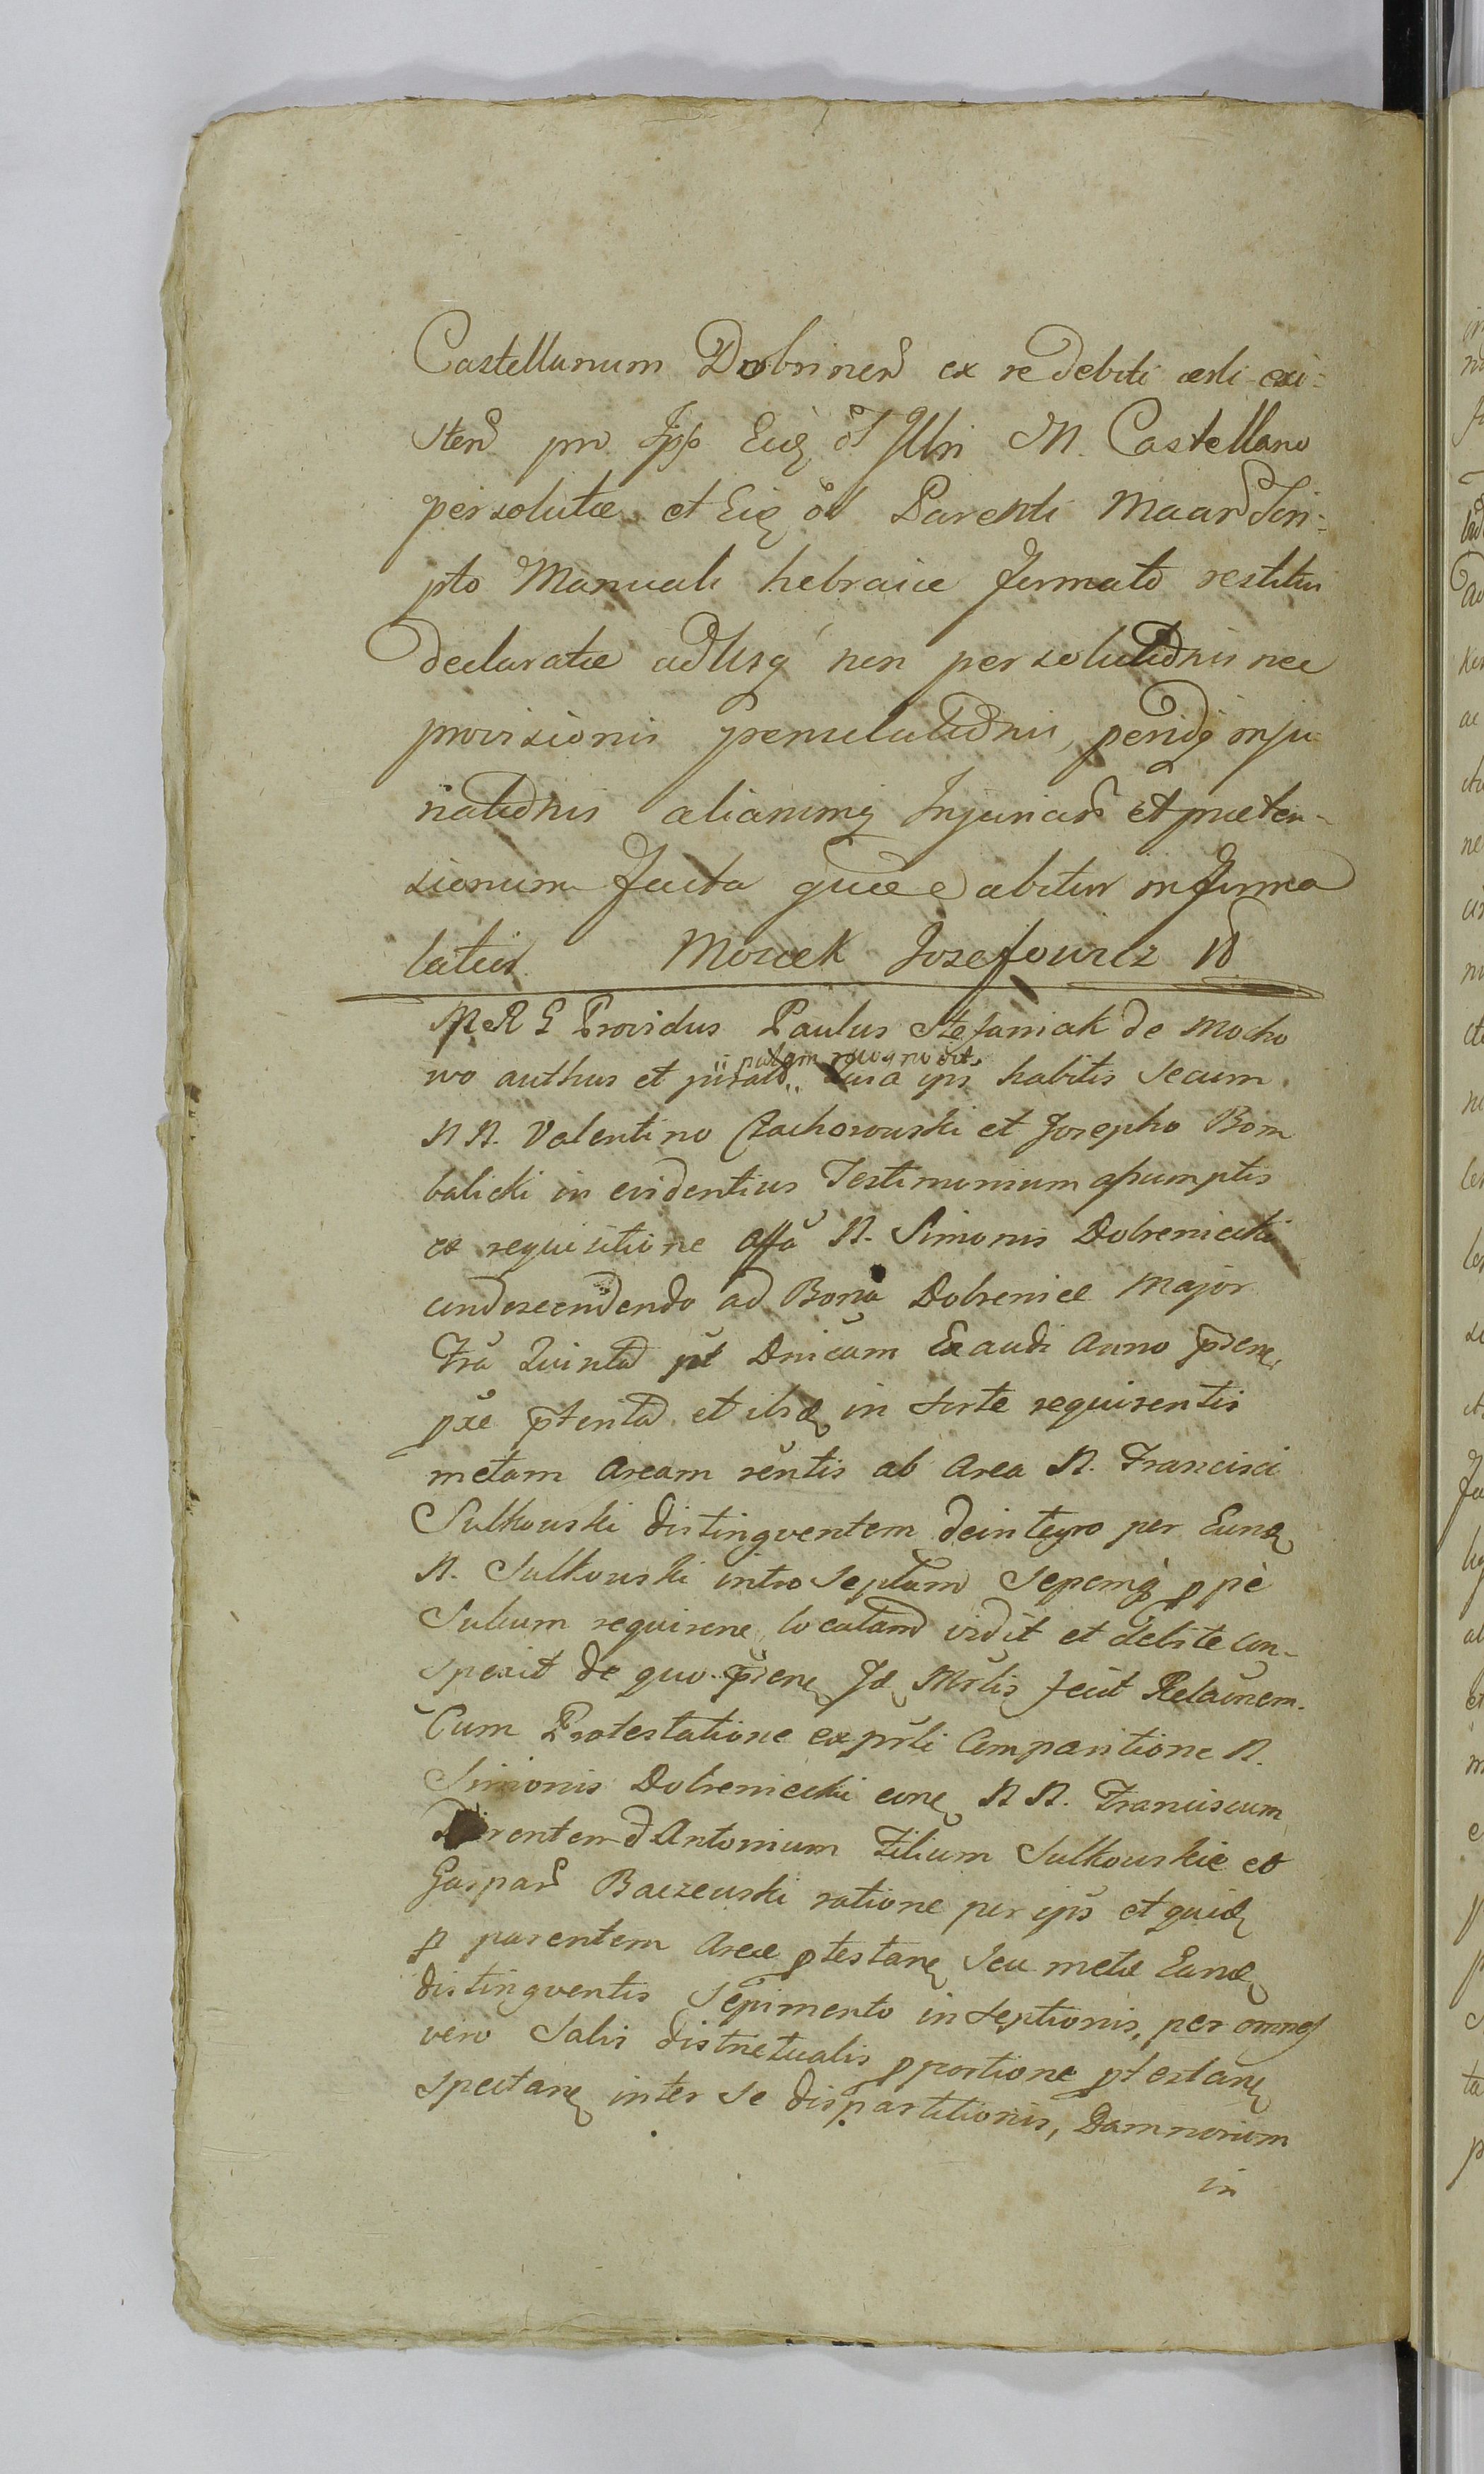 Castellanum Dobrinen ex re debiti certi exi-
sten pro Ipso Eidem olim Illri M. Castellano
persolutae et Eidem olim Parenti Maar Scri-
pto Manuali hebraice firmato restitui
declaratae adusq non persolutionis nec
provisionis pensolutionis, perindeq inju-
riationis aliarumq Injuriar et praeten-
sionum facta quae dabitur in forma
latius. Moszek Jozefowicz
M R G Providus Paulus Stefaniak de Mocho
palam recognovit
wo authus et jurats Quia ips habitis secum
N N. Valentino Czachorowski et Josepho Bom
balicki in evidentius Testimonium assumptis
ex requisitione Affa N. Simonis Dobrenicki
condescendendo ad Bona Dobrenice Major
Fra Quinta pt Dnicam Exaudi Anno pden
pxe ptenta et ibid in sorte requirentis
metam Aream rentis ab Area N. Francisci
Sulkowski distingventem de integro per Eund
N. Sulkowski introseptam Sepemq ppe
Suleum requirene locatam vidit et debite con-
spexit de quo pden Id Mrlis fecit Relaonem.
Cum Protestatione ex prli Comparitione N.
Simonis Dobrenicki cone N N. Franciscum
Parentem Antonium Filium Sulkowskie et
Gaspar Baczewski ratione per ips et quid
p parentem Areae ptestane seu metae Eand
distingventis Sepimento inseptionis, per omnes
vero Salis districtualis pportione ptestane
spectane inter se dispartitionis, Damnorum
in